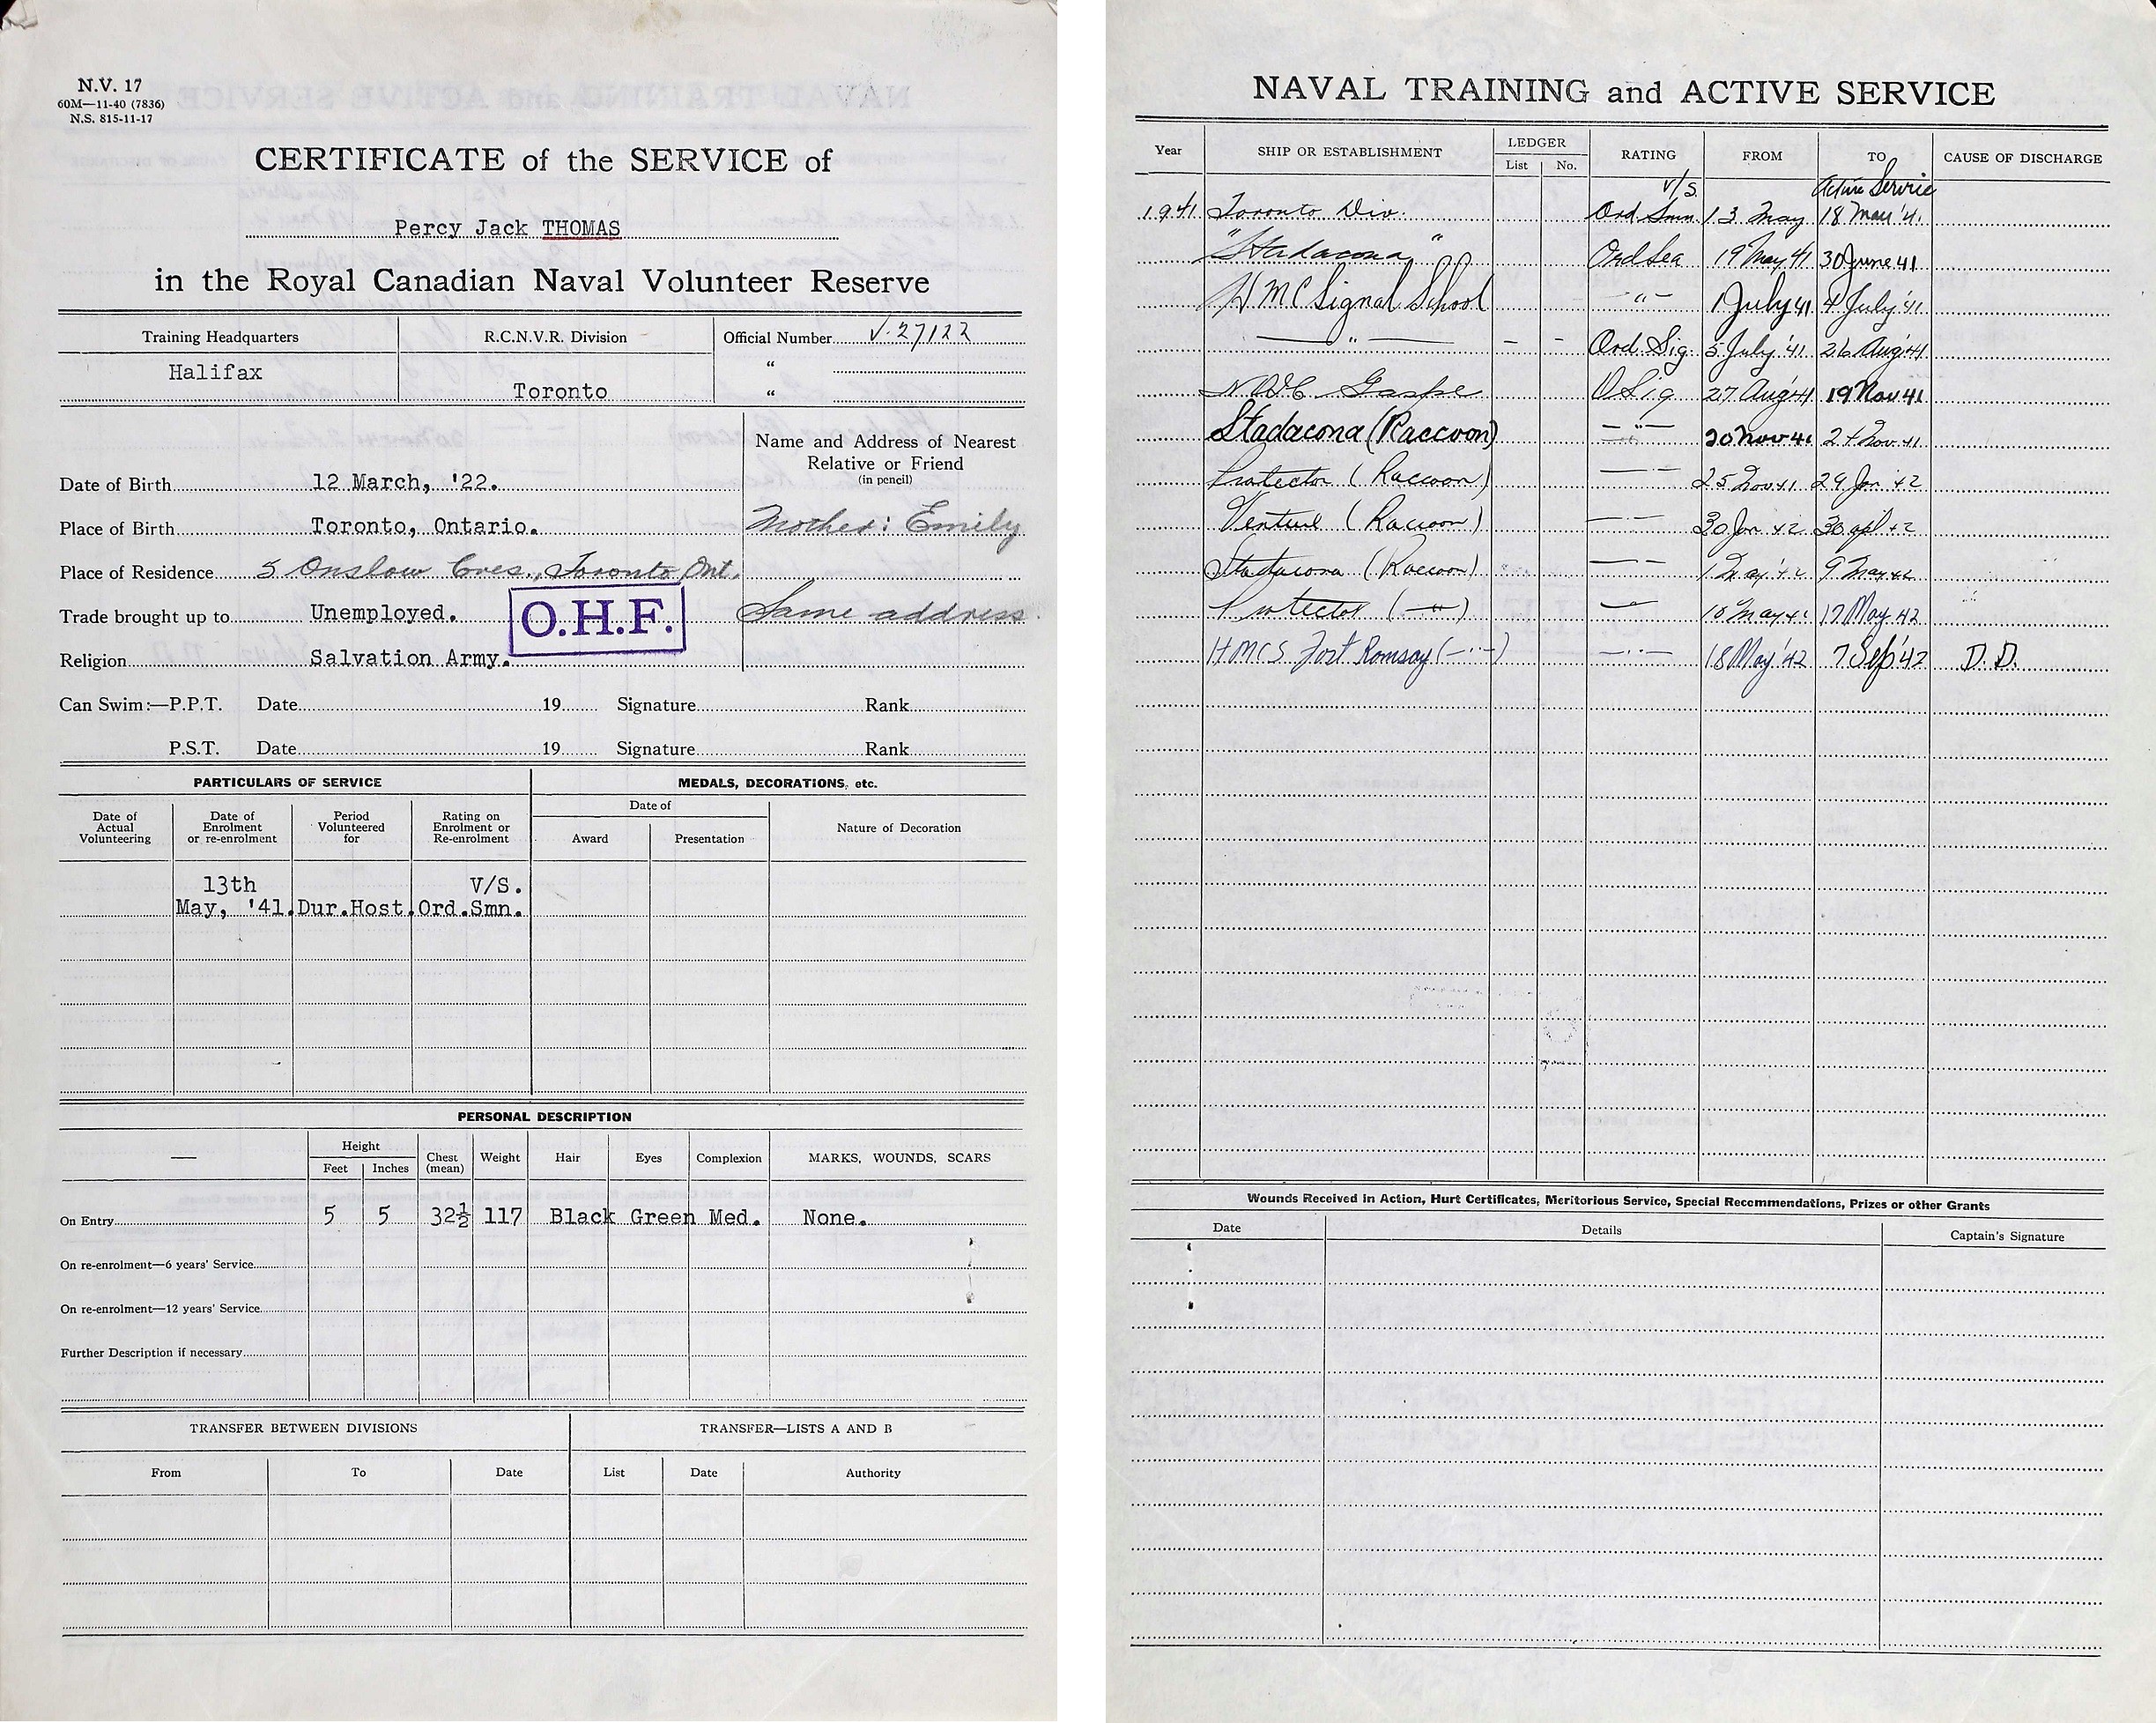 N.V. 17
60M—11-40 (7836)
N.S. 815-11-17
CERTIFICATE of the SERVICE of
Percy Jack THOMAS
in the Royal Canadian Naval Volunteer Reserve
Training Headquarters R.C.N.V.R. Division Official Number V.27122
Halifax "
Toronto "
Name and Address of Nearest
Relative or Friend
(in pencil)
Date of Birth 12 March, '22.
Place of Birth Toronto, Ontario. Mother: Emily
Place of Residence 5 Onslow Cres., Toronto Ont.
Trade brought up to Unemployed. O.H.F. Same address
Religion Salvation Army.
Can Swim:—P.P.T. Date 19 Signature Rank
P.S.T. Date 19 Signature Rank
PARTICULARS OF SERVICE MEDALS, DECORATIONS, etc.
Date of Actual Volunteering Date of Enrolment or re-enrolment Period Volunteered for Rating on Enrolment or Re-enrolment Date of Award Presentation Nature of Decoration
13th V/S.
May, '41. Dur.Host. Ord.Smn.
PERSONAL DESCRIPTION
— Height Feet Inches Chest (mean) Weight Hair Eyes Complexion MARKS, WOUNDS, SCARS
On Entry 5 5 32½ 117 Black Green Med. None.
On re-enrolment—6 years' Service
On re-enrolment—12 years' Service
Further Description if necessary
TRANSFER BETWEEN DIVISIONS TRANSFER—LISTS A AND B
From To Date List Date Authority
NAVAL TRAINING and ACTIVE SERVICE
Year SHIP OR ESTABLISHMENT LEDGER List No. RATING FROM TO CAUSE OF DISCHARGE
V/S. Active Service
1941 Toronto Div. Ord Smn 13 May 18 May '41.
"Stadacona" Ord Sea 19 May 41 30 June 41
H M C Signal School —"— 1 July 41 4 July '41
— " — - - Ord. Sig. 5 July '41 26 Aug '41
N.O.I.C. Gaspe O Sig 27 Aug '41 19 Nov 41
Stadacona (Raccoon) —"— 20 Nov 41 24 Nov 41
Protector (Raccoon) — — 25 Nov 41 29 Jan 42
Venture (Raccoon) — — 30 Jan 42 30 Apl 42
Stadacona (Raccoon) — — 1 May '42 9 May 42
Protector (—"—) — 10 May 42 17 May 42
HMCS Fort Ramsay (—"—) —"— 18 May '42 7 Sep '42 D.D.
Wounds Received in Action, Hurt Certificates, Meritorious Service, Special Recommendations, Prizes or other Grants
Date Details Captain's Signature